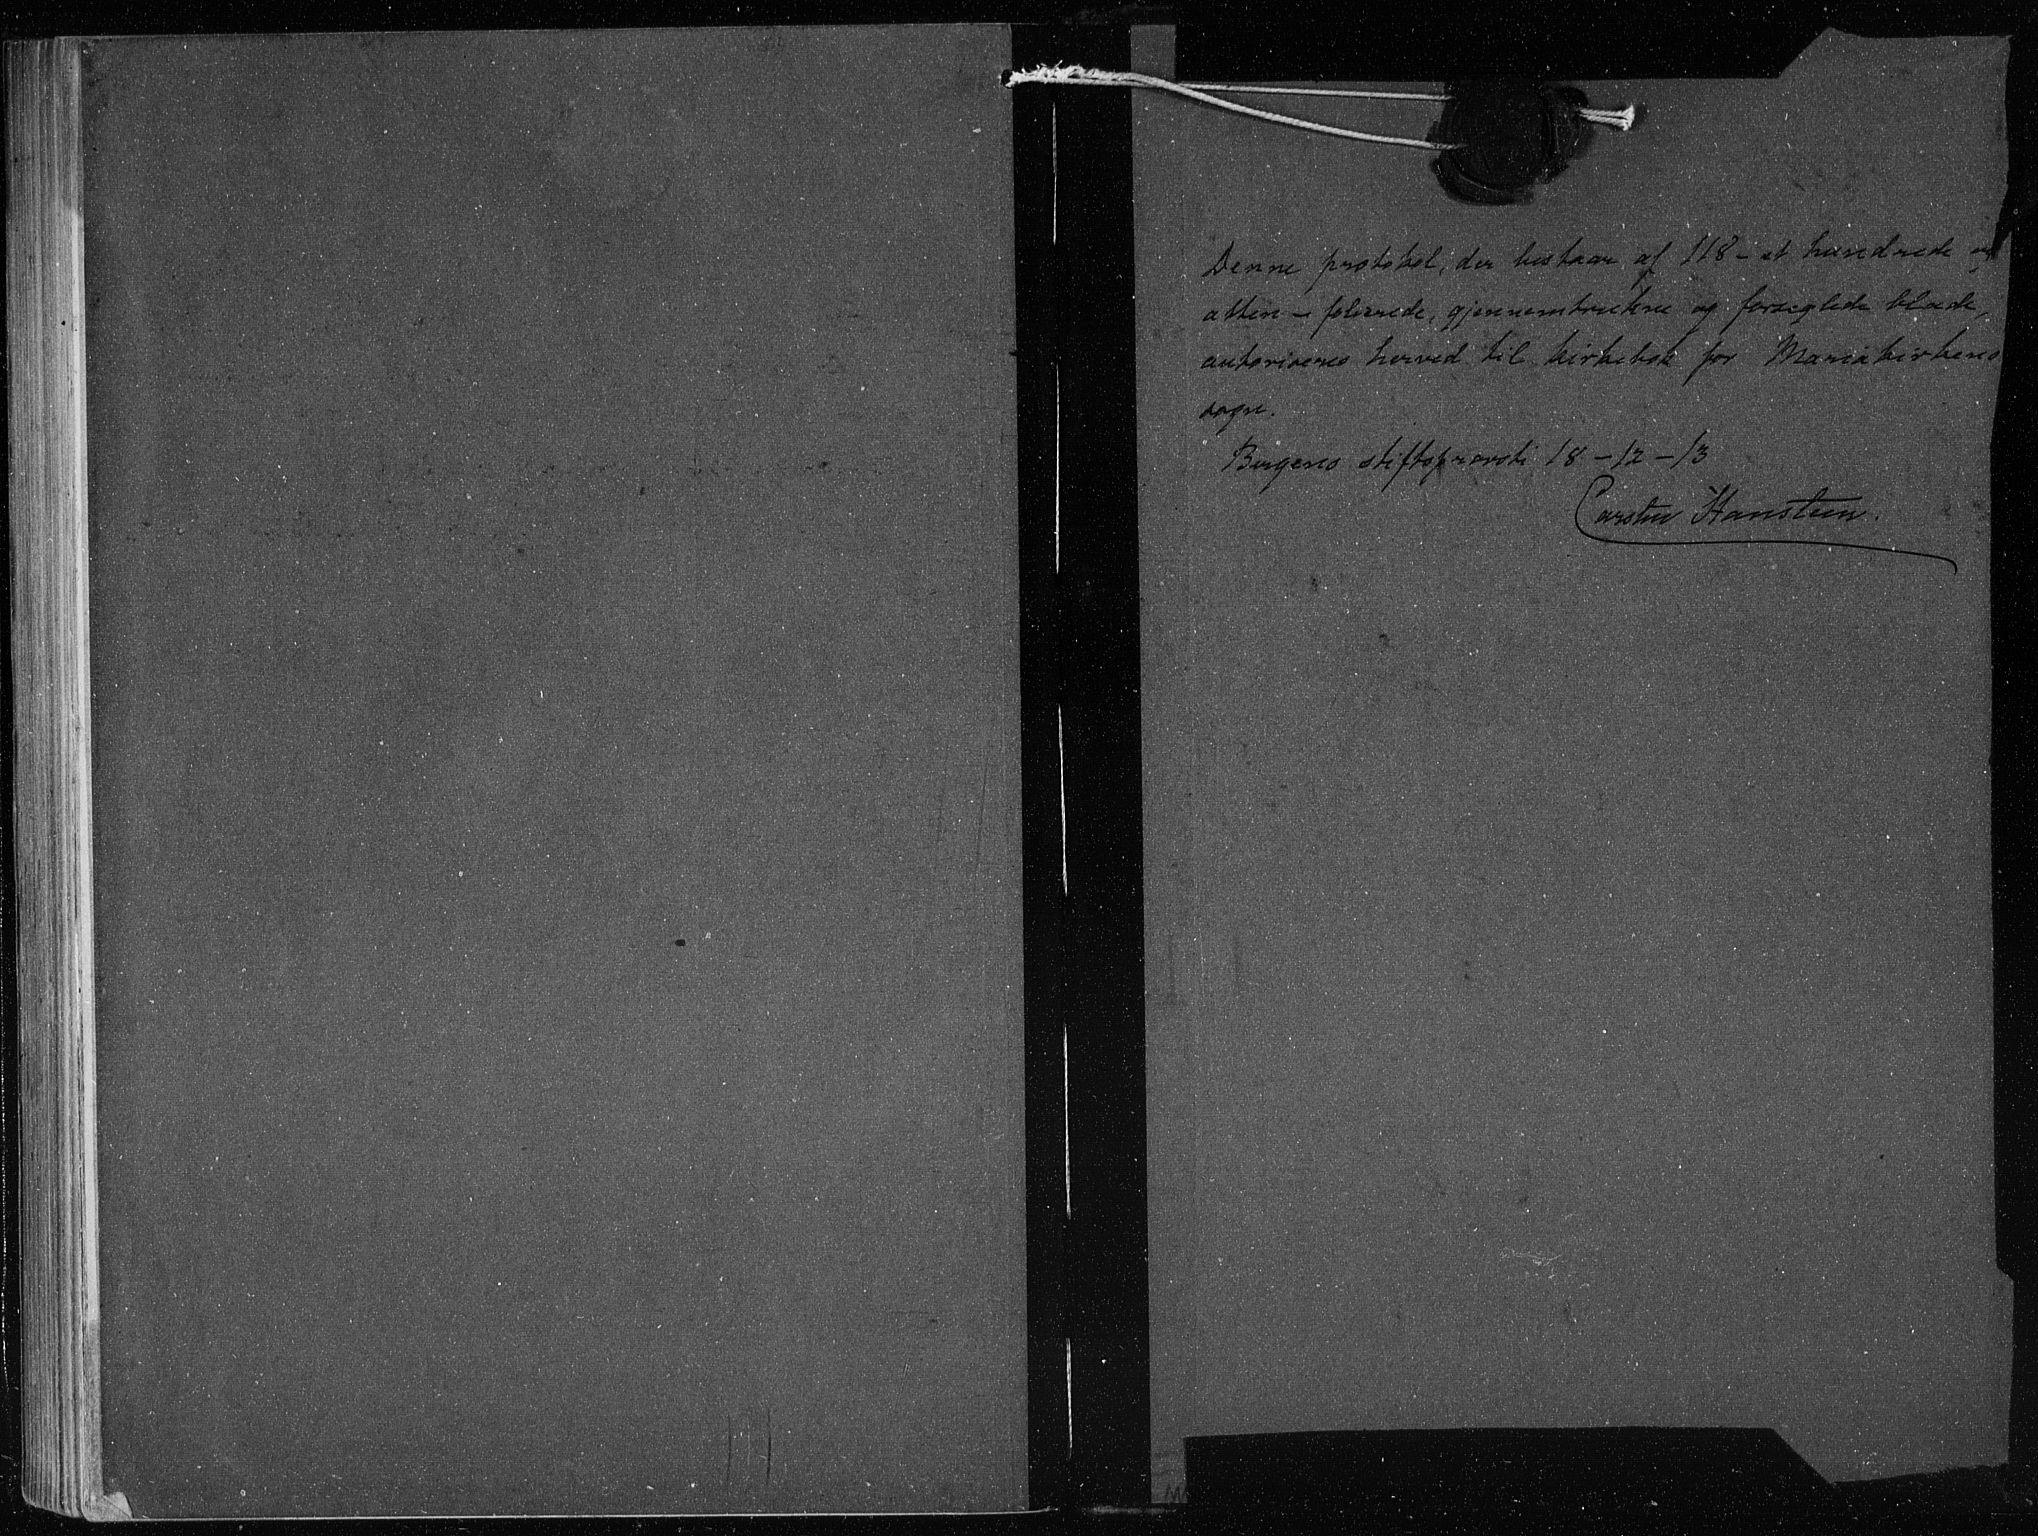 Denne protokol, der bestaar af 118 - et hundrede og
atten - folierede, gjennemtrukne og forseglede blade,
autoriseres herved til kirkebok for Mariakirkens
sogn.
Bergens stiftsprovsti 18 - 12 - 13
Carsten Hansteen.